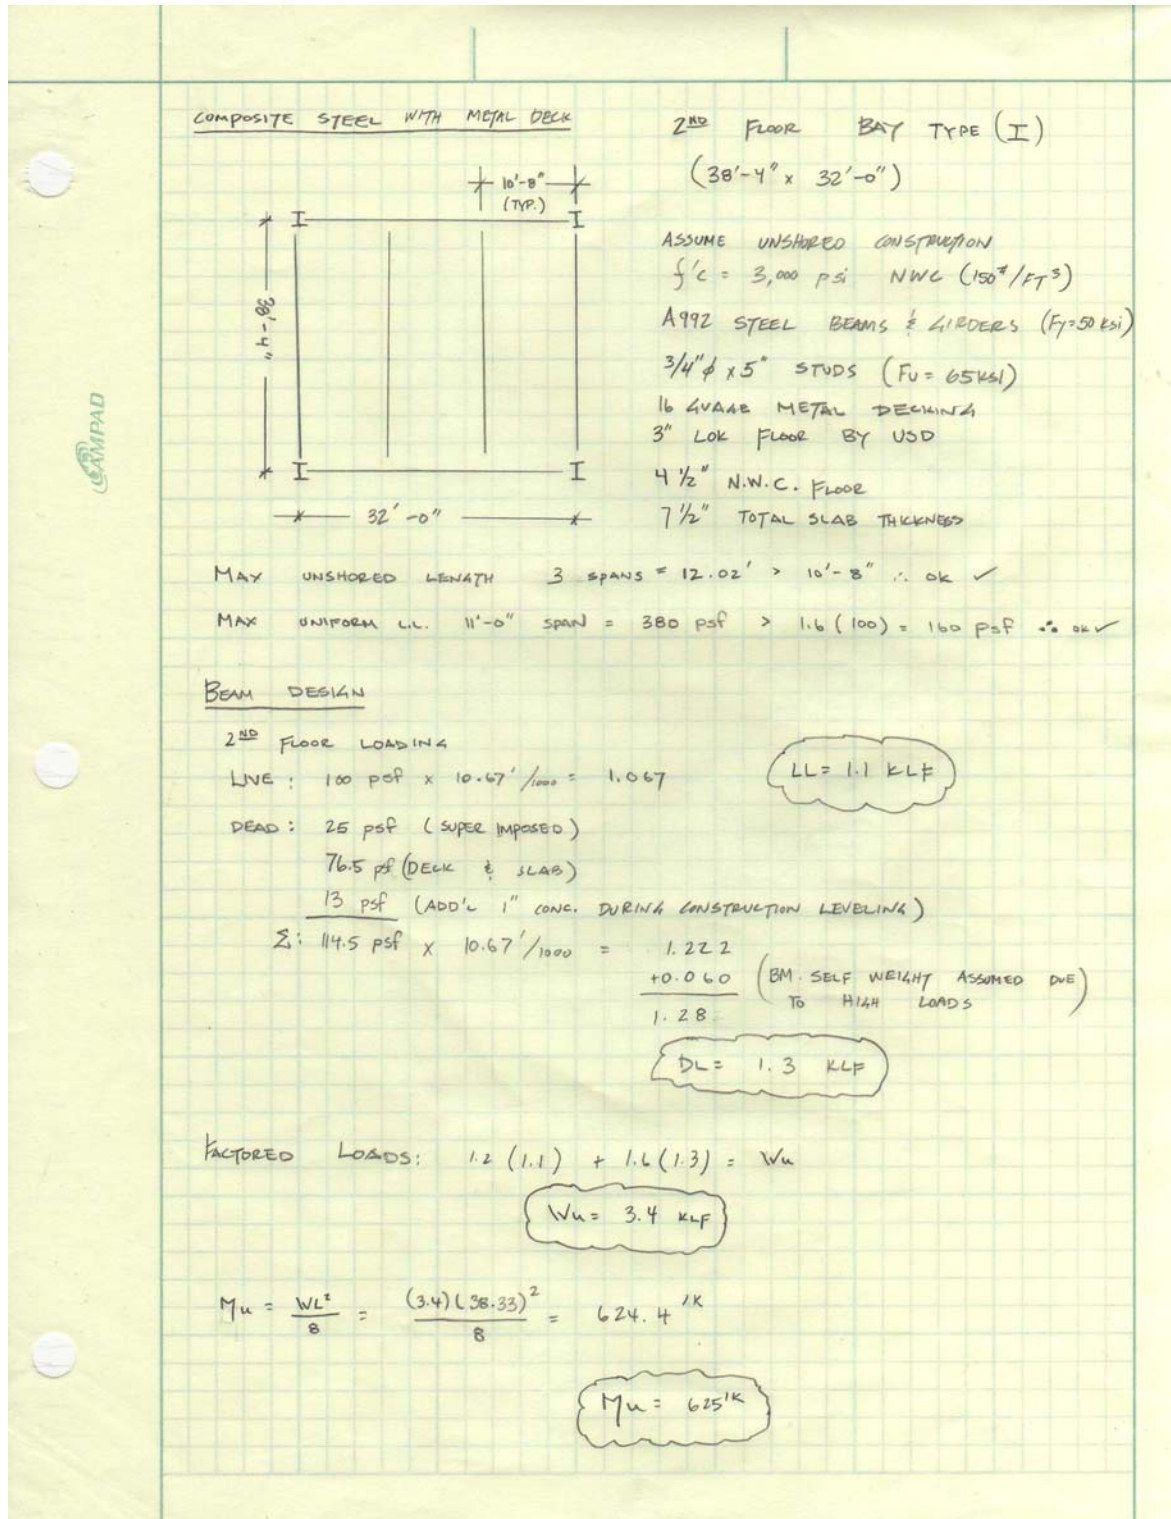 COMPOSITE STEEL WITH METAL DECK
2ND FLOOR BAY TYPE (I)
(38'-4" x 32'-0")
10'-8"
(TYP.)
38'-4"
32'-0"
ASSUME UNSHORED CONSTRUCTION
f'c = 3,000 psi NWC (150#/FT3)
A992 STEEL BEAMS & GIRDERS (Fy=50 ksi)
3/4"ϕ x 5" STUDS (Fu = 65KSI)
16 GUAGE METAL DECKING
3" LOK FLOOR BY USD
4 1/2" N.W.C. FLOOR
7 1/2" TOTAL SLAB THICKNESS
CAMPAD
MAX UNSHORED LENGTH 3 SPANS = 12.02' > 10'-8" ∴ OK ✓
MAX UNIFORM L.L. 11'-0" SPAN = 380 psf > 1.6 (100) = 160 psf ∴ OK ✓
BEAM DESIGN
2ND FLOOR LOADING
LIVE: 100 psf x 10.67'/1000 = 1.067
LL= 1.1 KLF
DEAD: 25 psf (SUPER IMPOSED)
76.5 psf (DECK & SLAB)
13 psf (ADD'L 1" CONC. DURING CONSTRUCTION LEVELING)
Σ: 114.5 psf x 10.67'/1000 = 1.222
+0.060 (BM. SELF WEIGHT ASSUMED DUE TO HIGH LOADS)
1.28
DL= 1.3 KLF
FACTORED LOADS: 1.2 (1.1) + 1.6 (1.3) = Wu
Wu= 3.4 KLF
Mu = WL²/8 = (3.4)(38.33)²/8 = 624.4 'K
Mu= 625'K